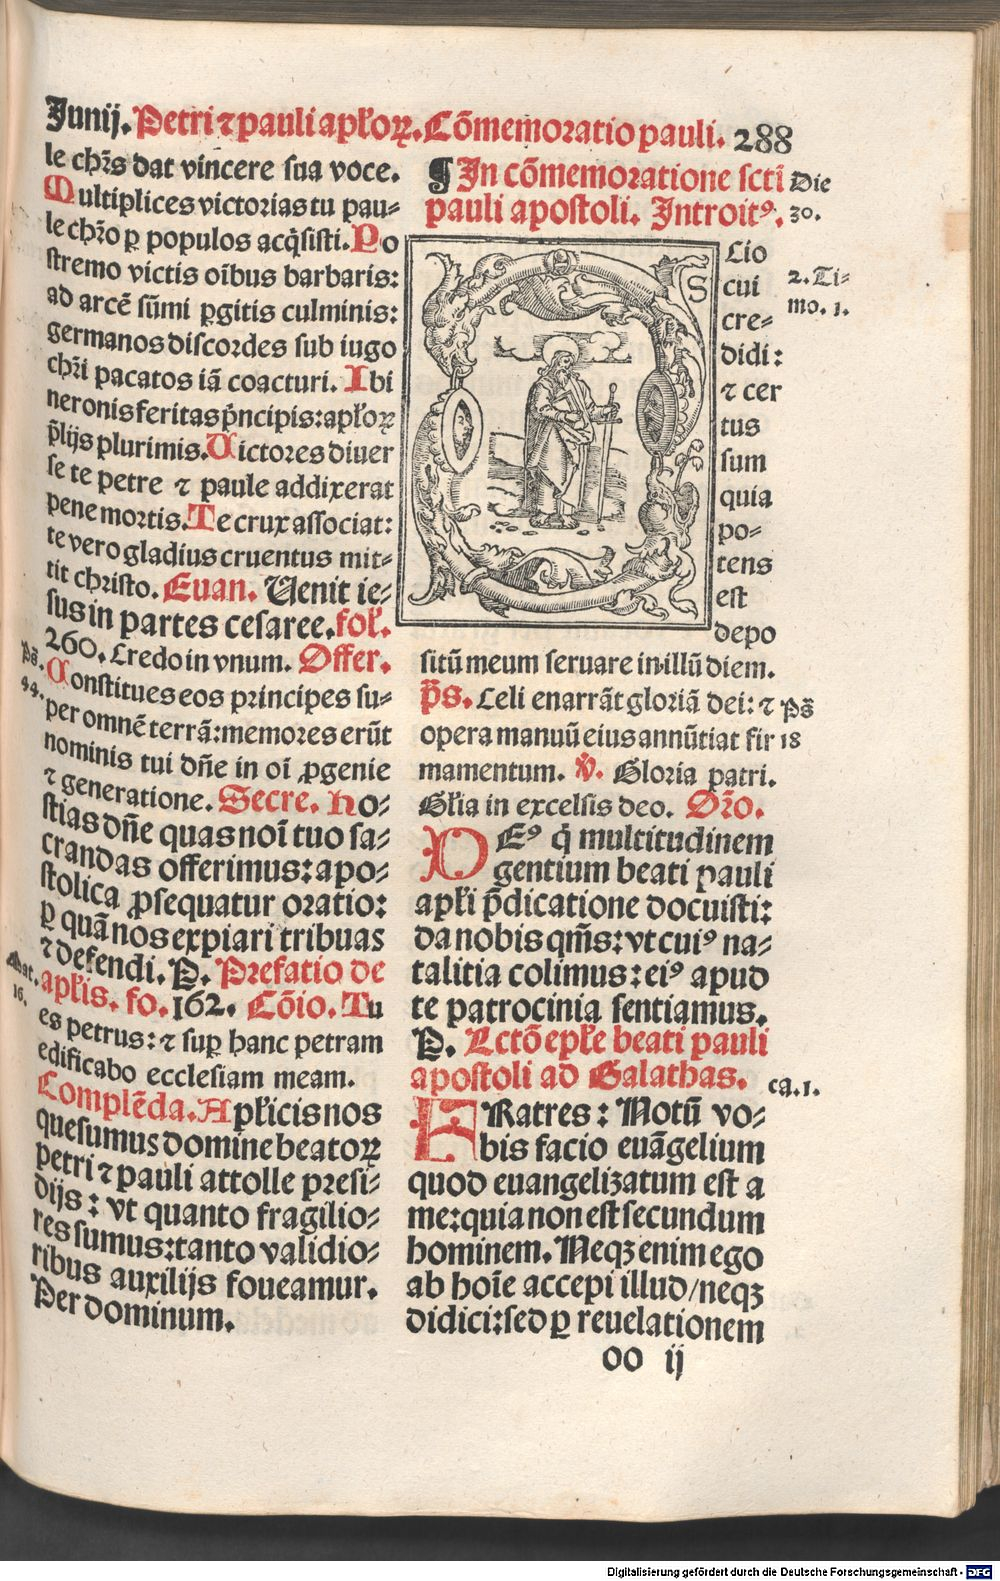 Junij. Petri ⁊ pauli apl'oꝝ. Cōmemoratio pauli. 288
le chr̄s dat vincere sua voce.
Multiplices victorias tu pau-
le chr̄o ꝑ populos acq̇sisti. Po
stremo victis oībus barbaris:
ad arcē sūmi ꝑgitis culminis:
germanos discordes sub iugo
chr̄i pacatos iā coacturi. Ibi
neronis feritas p̄ncipis: apl'oꝝ
p̄lijs plurimis. Victores diuer
se te petre ⁊ paule addixerat
pene mortis. Te crux associat:
te vero gladius cruentus mit-
tit christo. Euan. Venit ie-
sus in partes cesaree. fol'.
260. Credo in vnum. Offer.
Ps̄.
44.
Constitues eos principes su-
per omnē terrā: memores erūt
nominis tui dn̄e in oī ꝓgenie
⁊ generatione. Secre. Ho-
stias dn̄e quas noī tuo sa-
crandas offerimus: apo-
stolica ꝓsequatur oratio:
ꝑ quā nos expiari tribuas
⁊ defendi. P. Prefatio de
Mat.
16.
apl'is. fo. 162. Cōio. Tu
es petrus: ⁊ suꝑ hanc petram
edificabo ecclesiam meam.
Complēda. Apl'icis nos
quesumus domine beatoꝝ
petri ⁊ pauli attolle presi-
dijs: vt quanto fragilio-
res sumus: tanto validio-
ribus auxilijs foueamur.
Per dominum.
¶ In cōmemoratione scti
pauli apostoli. Introitꝰ.
Die
30.
S
Cio
cui
cre-
didi:
⁊ cer
tus
sum
quia
po-
tens
est
depo
2. Ti-
mo. 1.
sitū meum seruare in illū diem.
p̄s. Celi enarrāt gloriā dei: ⁊
opera manuū eius annūtiat fir
Ps̄
18
mamentum. ℣. Gloria patri.
Gl'ia in excelsis deo. Or̄o.
DEꝰ q̇ multitudinem
gentium beati pauli
apl'i p̄dicatione docuisti:
da nobis qm̄s: vt cuiꝰ na-
talitia colimus: eiꝰ apud
te patrocinia sentiamus.
P. Lctō epl'e beati pauli
apostoli ad Galathas.
ca. 1.
FRatres: Notū vo-
bis facio euāgelium
quod euangelizatum est a
me: quia non est secundum
hominem. Neqꝫ enim ego
ab hoīe accepi illud/neqꝫ
didici: sed ꝑ reuelationem
oo ij
Digitalisierung gefördert durch die Deutsche Forschungsgemeinschaft - DFG